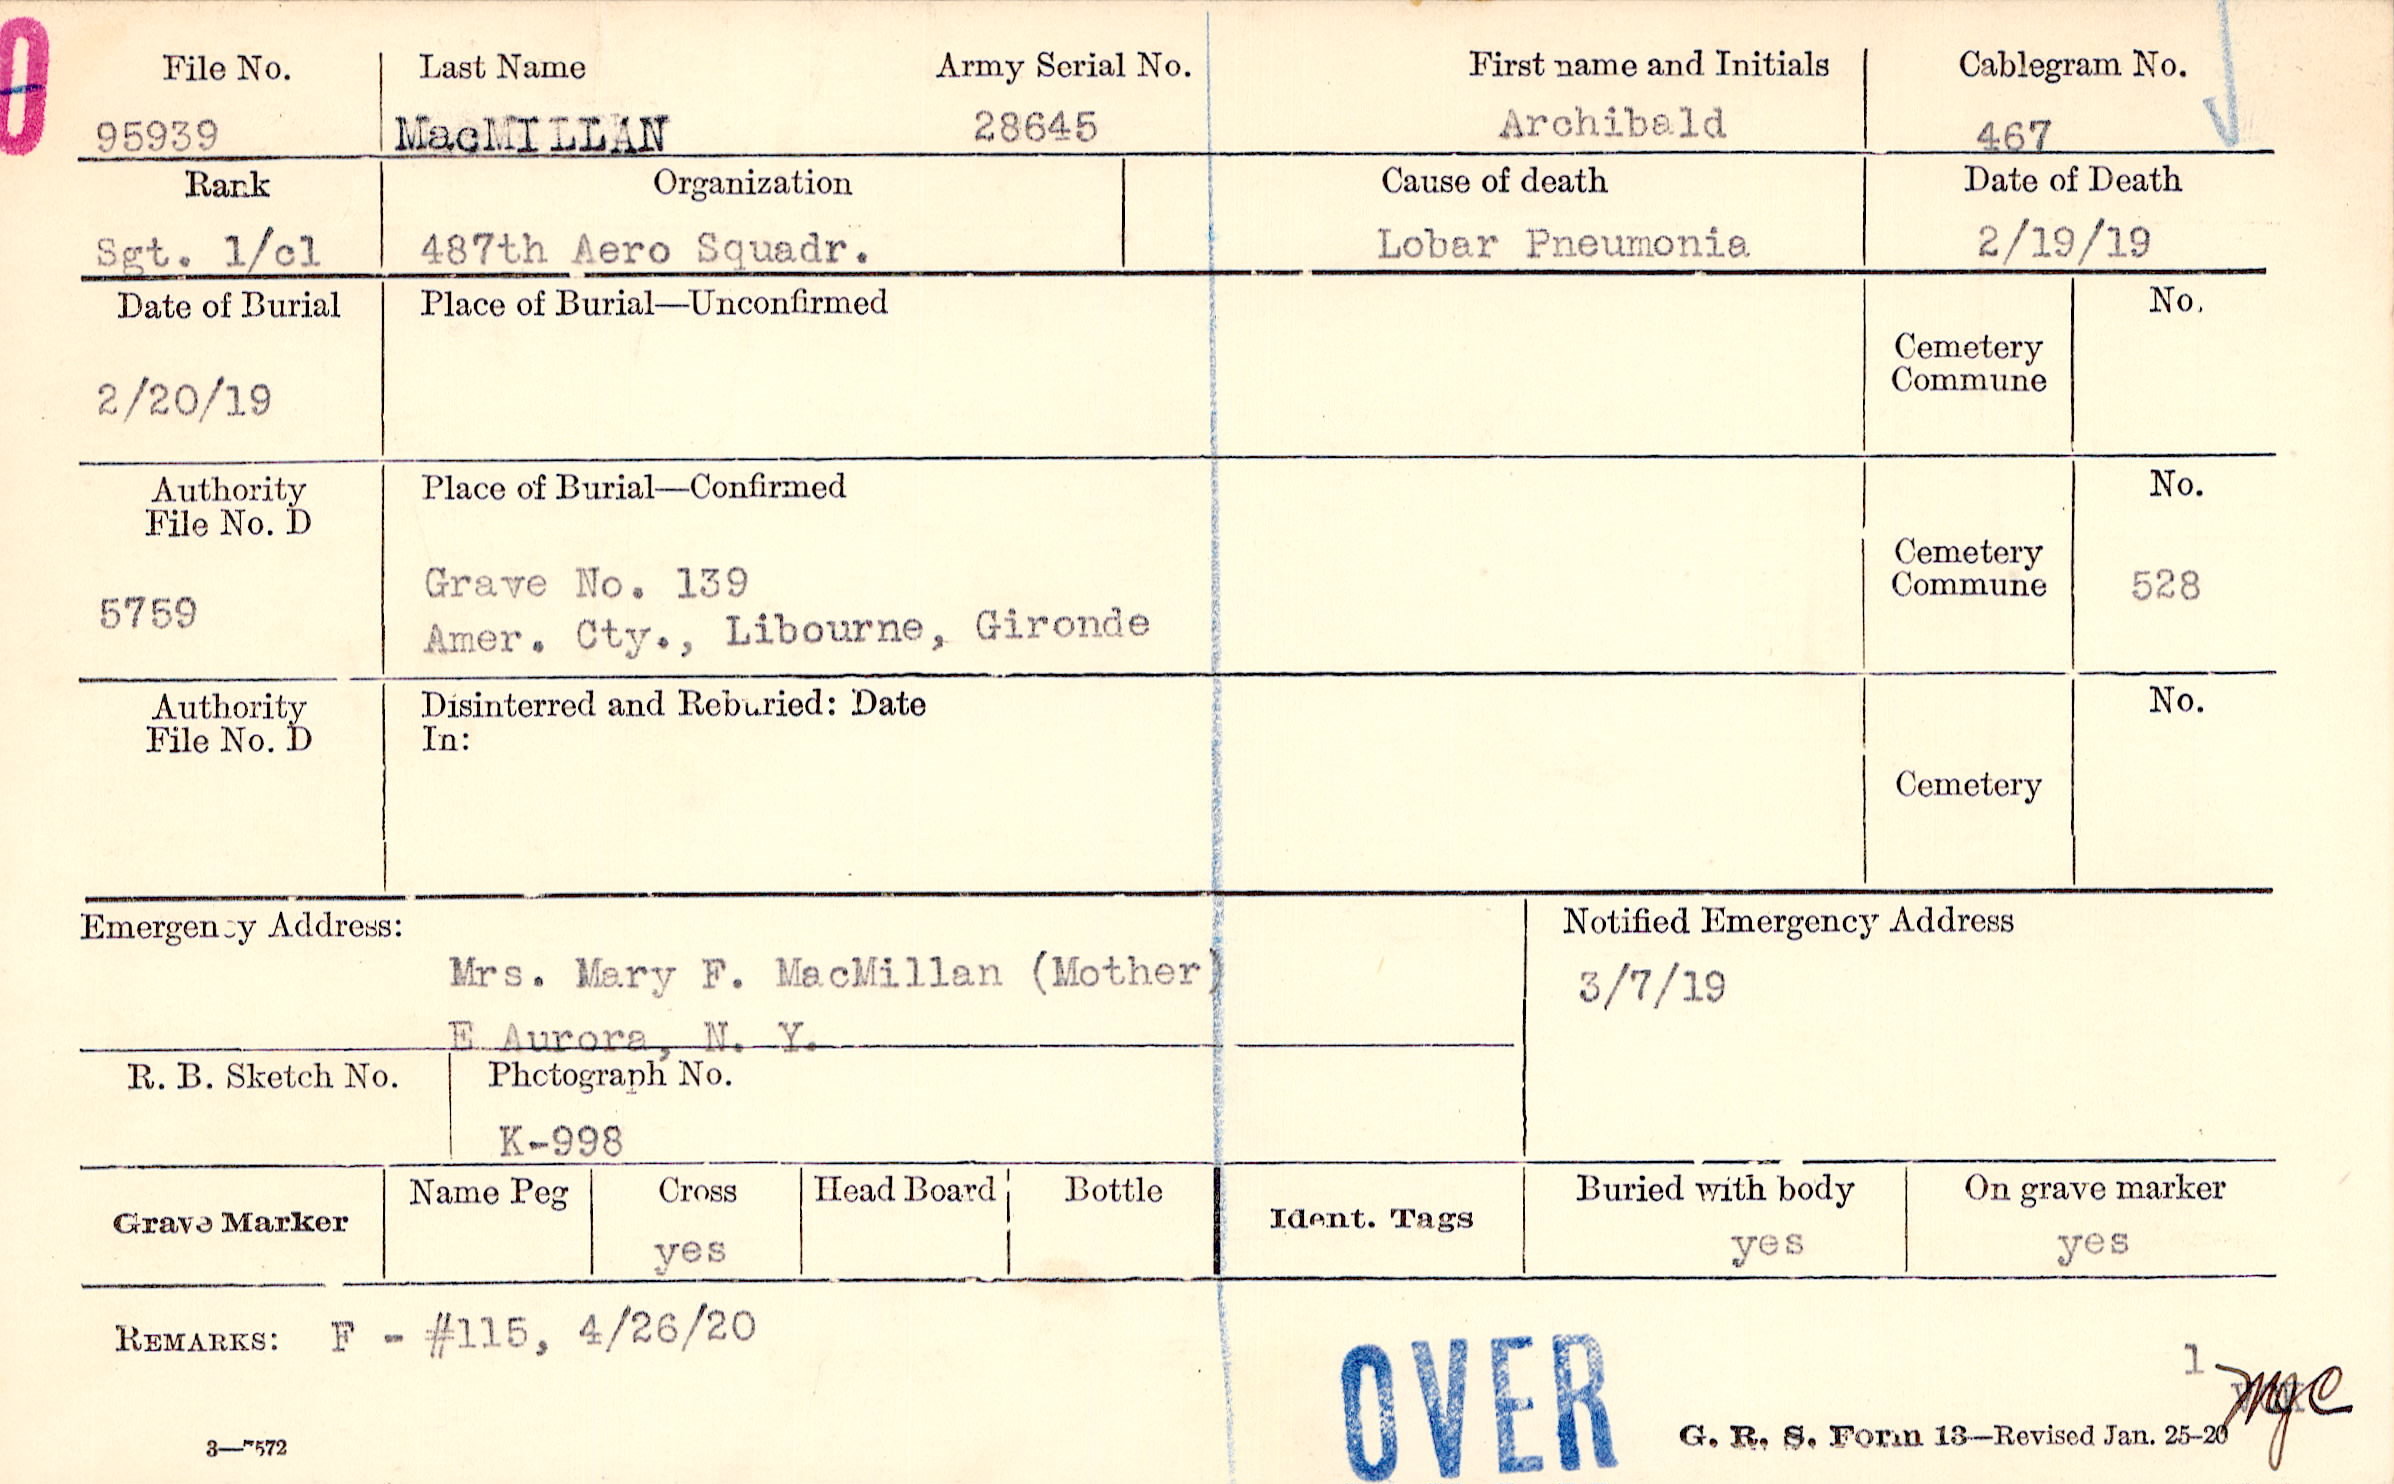 File No. Last Name Army Serial No. First name and Initials Cablegram No.
95939 MacMILLAN 28645 Archibald 467
Rank Organization Cause of death Date of Death
Sgt. 1/cl 487th Aero Squadr. Lobar Pneumonia 2/19/19
Date of Burial Place of Burial—Unconfirmed No.
Cemetery
Commune
2/20/19
Authority Place of Burial—Confirmed No.
File No. D
Cemetery
Grave No. 139 Commune 528
5759
Amer. Cty., Libourne, Gironde
Authority Disinterred and Reburied: Date No.
File No. D In:
Cemetery
Emergency Address: Notified Emergency Address
Mrs. Mary F. MacMillan (Mother) 3/7/19
E Aurora, N. Y.
R. B. Sketch No. Photograph No.
K-998
Grave Marker Name Peg Cross Head Board Bottle Ident. Tags Buried with body On grave marker
yes yes yes
REMARKS: F - #115, 4/26/20
OVER
1
mgc
3—7572 G. R. S. Form 13—Revised Jan. 25-20